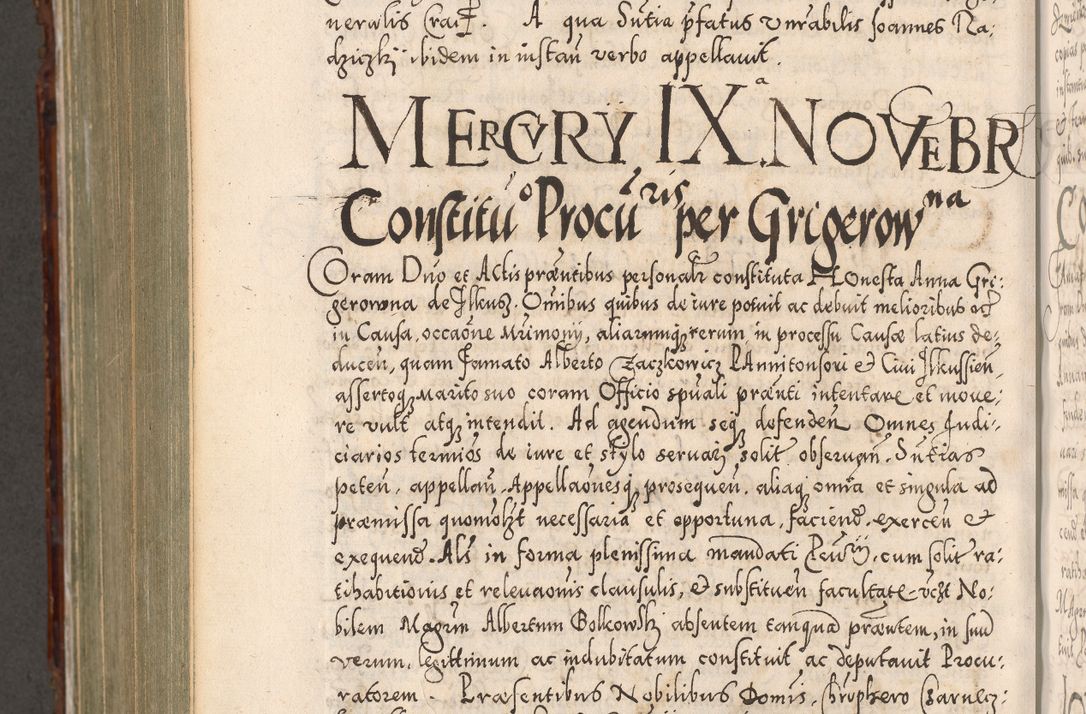 neralis Crac. A qua Sntia pfatus Vnrabilis Joannes Ra-
dziczkÿ ibidem in instan verbo appellauit.
MERCVRY IXª NOVEBR
Constitu° Procuris per Grigerowna
Coram Dno et Actis præntibus personalr constituta Honesta Anna Gri-
gerowna de Ilkusz. Omnibus quibus de iure potuit ac debuit melioribus
in Causa, occaone Mrimonÿ, aliarumq rerum, in processu Causæ latius de-
ducen, quam Famato Alberto Zaczkowicz Pannitonsori et Ciui Ilkussien,
assertoq marito suo coram Officio spuali prænti intentare et moue-
re vult atq intendit. Ad agendum seq defenden Omnes Judi-
ciarios termios de iure et stylo seruari solit obseruan. Sntias
peten, appellan. Appellaonesq prosequen, aliaq omia et singula ad
præmissa quomolzt necessaria et opportuna, faciend exercen et
exequend. Als in forma plenissima mandati cum solit ra-
tihabitionis et releuaonis clausulis, et substituen facultate vczt No-
bilem Magrm Albertum Bolkowsky absentem tanqua præntem, in suu
verum, legittimum ac indubitatum constituit ac deputauit Procu-
ratorem. Præsentibus Nobilibus Domis,